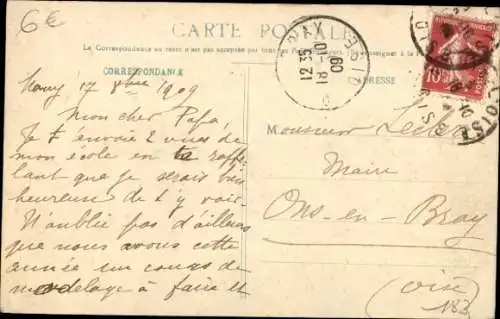 6€
CARTE POSTALE
La Correspondance au recto n'est pas acceptée par tous les Pays
CORRESPONDANCE
ADRESSE
12 35
18 - 10
09
OISE
10
17 9bre 1909
Mon cher Papa,
Je t'envoie 2 vues de
mon école en te rappe
lant que je serai bien
heureuse de t'y voir.
N'oublie pas d'ailleurs
que nous avons cette
année un cours de
modelage à faire et
Monsieur Leclerc
Maire
Ons-en-Bray
(Oise)
183